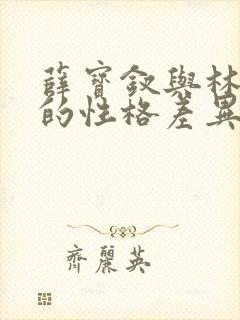 薛寶釵與林
的性格差異
齊麗英